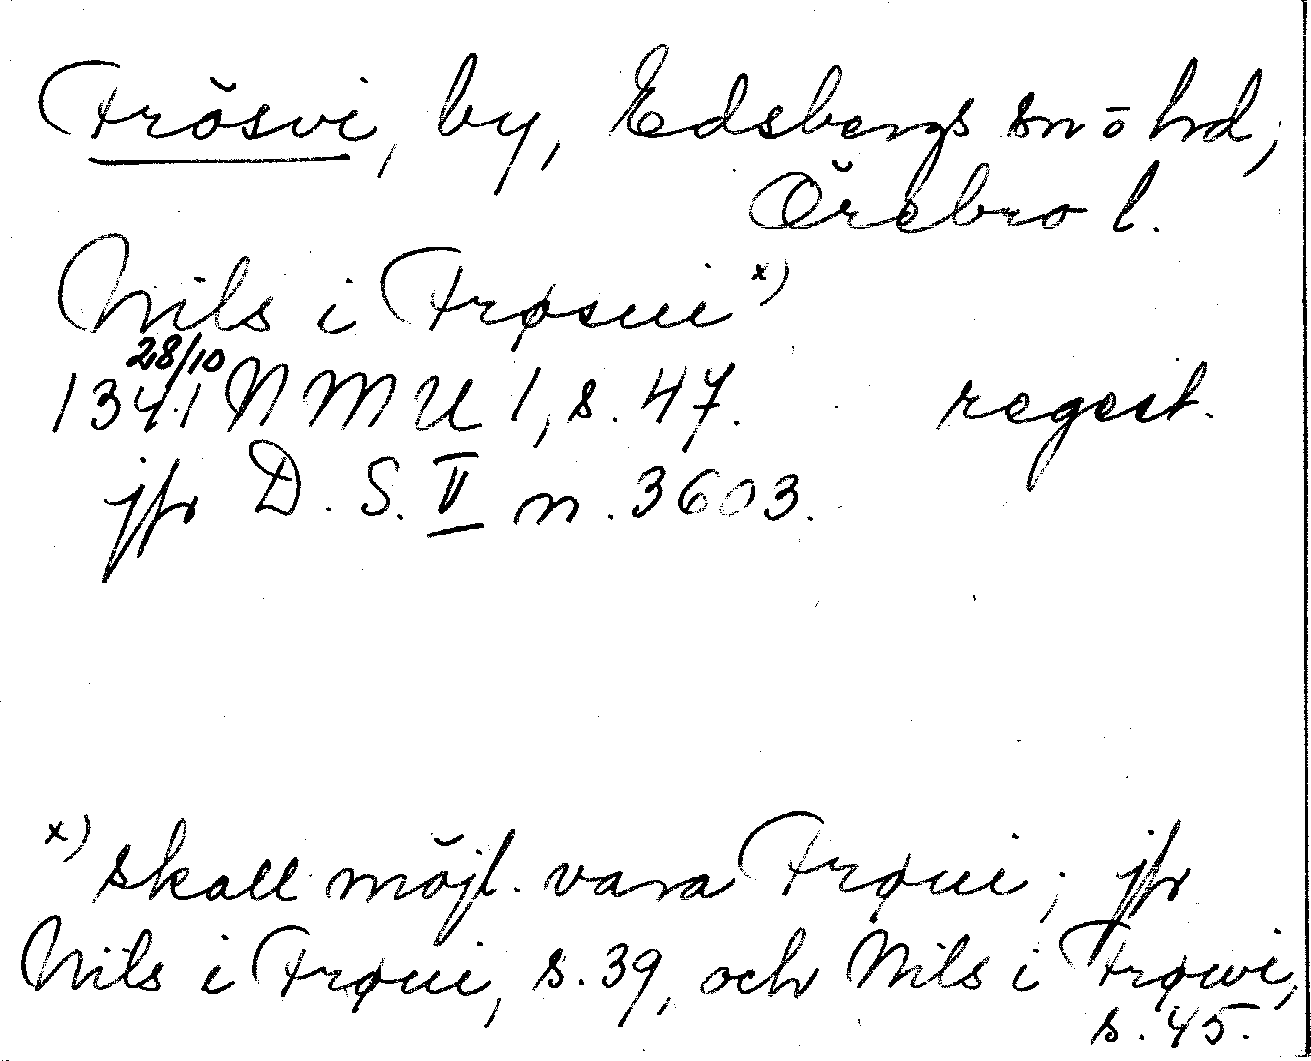 Frösvi, by, Edsbergs sn o hd,
Örebro l.
Nils i Frøsui x)
28/10
1341 NMU 1, s. 47. regest.
jfr D. S. V n. 3603.
x) skall möjl. vara Frøui; jfr
Nils i Frøui, s. 39, och Nils i Frøwi,
s. 45.